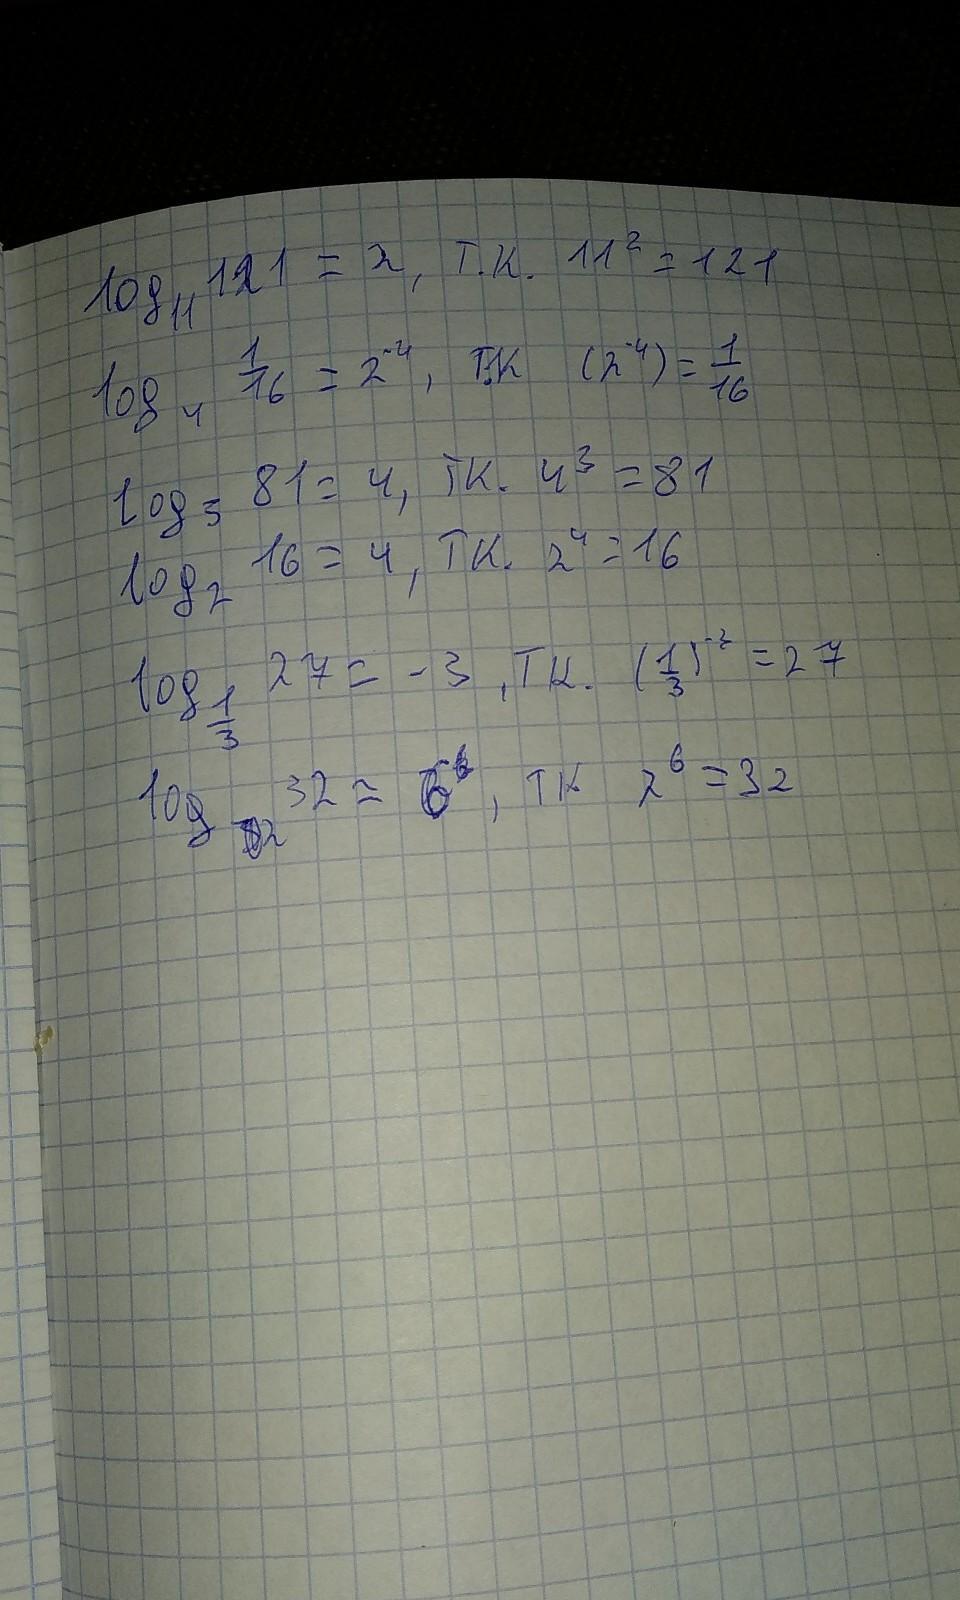 log₁₁ 121 = 2, т.к. 11² = 121
log₄ 1/16 = 2⁻⁴, т.к (2⁻⁴) = 1/16
log₃ 81 = 4, тк. 4³ = 81
log₂ 16 = 4, тк. 2⁴ = 16
log_1/3 27 = -3, тк. (1/3)⁻³ = 27
log₂ 32 = 6, тк 2⁶ = 32